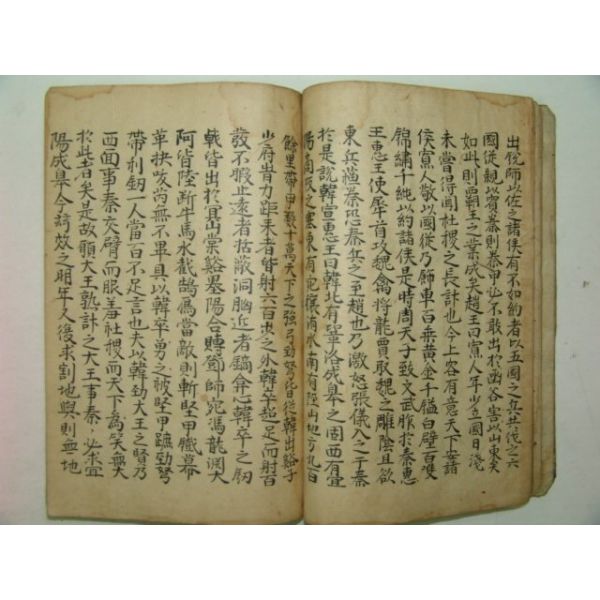 出悅師以佐之諸侯有不如約者以五國之兵共伐之六
國從親以賓秦則秦甲必不敢出於函谷害以山東矣
如此則霸王之業成矣趙王曰寡人年少立國日淺
未嘗得聞社稷之長計也今上客有意天下安諸
侯寡人敬以國從乃飾車百乘黃金千鎰白璧百雙
錦繡千純以約諸侯是時周天子致文武胙於秦惠
王惠王使犀首攻魏禽將龍賈取魏之雕陰且欲
東兵蘇秦恐秦兵之至趙也乃激怒張儀入之于秦
於是說韓宣惠王曰韓北有鞏洛成皋之固西有宜
陽商阪之塞東有宛穰洧水南有陘山地方九百
餘里帶甲數十萬天下之强弓勁弩皆從韓出谿子
少府時力距來者皆射六百步之外韓卒超足而射百
發不暇止遠者括蔽洞胸近者鏑弇心韓卒之劒
戟皆出於冥山棠谿墨陽合賻鄧師宛馮龍淵大
阿皆陸斷牛馬水截鵠鴈當敵則斬堅甲鐵幕
革抉芮無不畢具以韓卒勇之被堅甲蹠勁弩
帶利釖一人當百不足言也夫以韓勁大王之賢乃
西面事秦交臂而服羞社稷而天下為笑無大
於此者矣是故願大王孰計之大王事秦必求宜
陽成皋今茲效之明年又復求割地與則無地